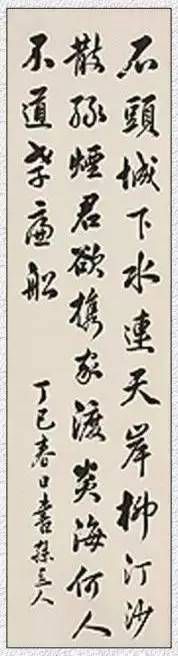 石頭城下水連天岸柳汀沙
散綠煙君欲携家渡炎海何人
不道孝廉船
丁巳春日書孫人